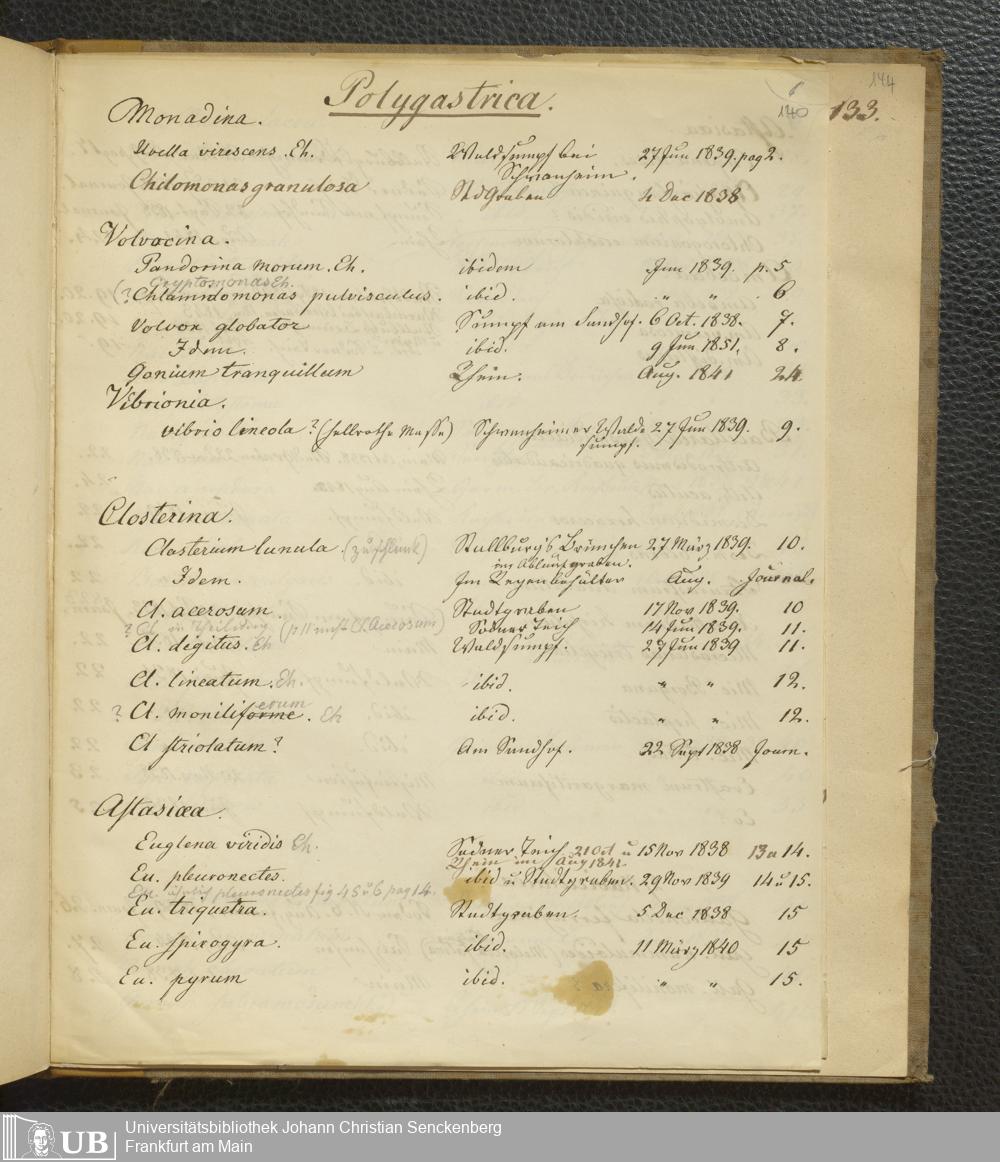 144
6
140
133.
Polygastrica.
Monadina.
Uvella virescens. Eh. Waldsumpf bei Schwanheim. 27 Jun 1839. pag 2.
Chilomonas granulosa StdGraben 4 Dec 1838
Volvocina.
Pandorina morum. Eh. ibidem Jun 1839. p. 5
Cryptomonas Eh.
(? Chlamidomonas pulvisculus. ibid. " " 6
Volvox globator Sumpf am Sandhof. 6 Oct. 1838. 7.
Idem. ibid. 9 Jun 1851. 8.
Gonium tranquillum Rhein. Aug. 1841 24.
Vibrionia.
vibrio lineola? (hellrothe Masse) Schwanheimer Wald- 27 Jun 1839. 9.
sumpf.
Closterina.
Closterium lunula. (zu schlank) Stallburg's Brünnchen 27 März 1839. 10.
im Abflußgraben.
Idem. Im Regenbehälter Aug. Journal.
Cl. acerosum Stadtgraben 17 Nov 1839. 10
? Cl. in Theilung (p 11 nicht Cl. Acerosum) Sodner Teich 14 Jun 1839. 11.
Cl. digitus. Eh Waldsumpf. 27 Jun 1839 11.
Cl. lineatum. Eh. ibid. " " 12.
erum
? Cl. moniliforme. Eh ibid. " " 12.
Cl striolatum? Am Sandhof. 22 Sept 1838 Journ.
Astasiaea.
Euglena viridis Eh. Sodner Teich 21 Oct u 15 Nov 1838 13 u 14.
Rhein im Aug 1841.
Eu. pleuronectes. ibid u Stadtgraben. 29 Nov 1839 14 u 15.
pleuronectes fig 45 u 6 pag 14.
Eu. triquetra. Stadtgraben. 5 Dec 1838 15
Eu. spirogyra. ibid. 11 März 1840 15
Eu. pyrum ibid. " " 15.
UB
Universitätsbibliothek Johann Christian Senckenberg
Frankfurt am Main